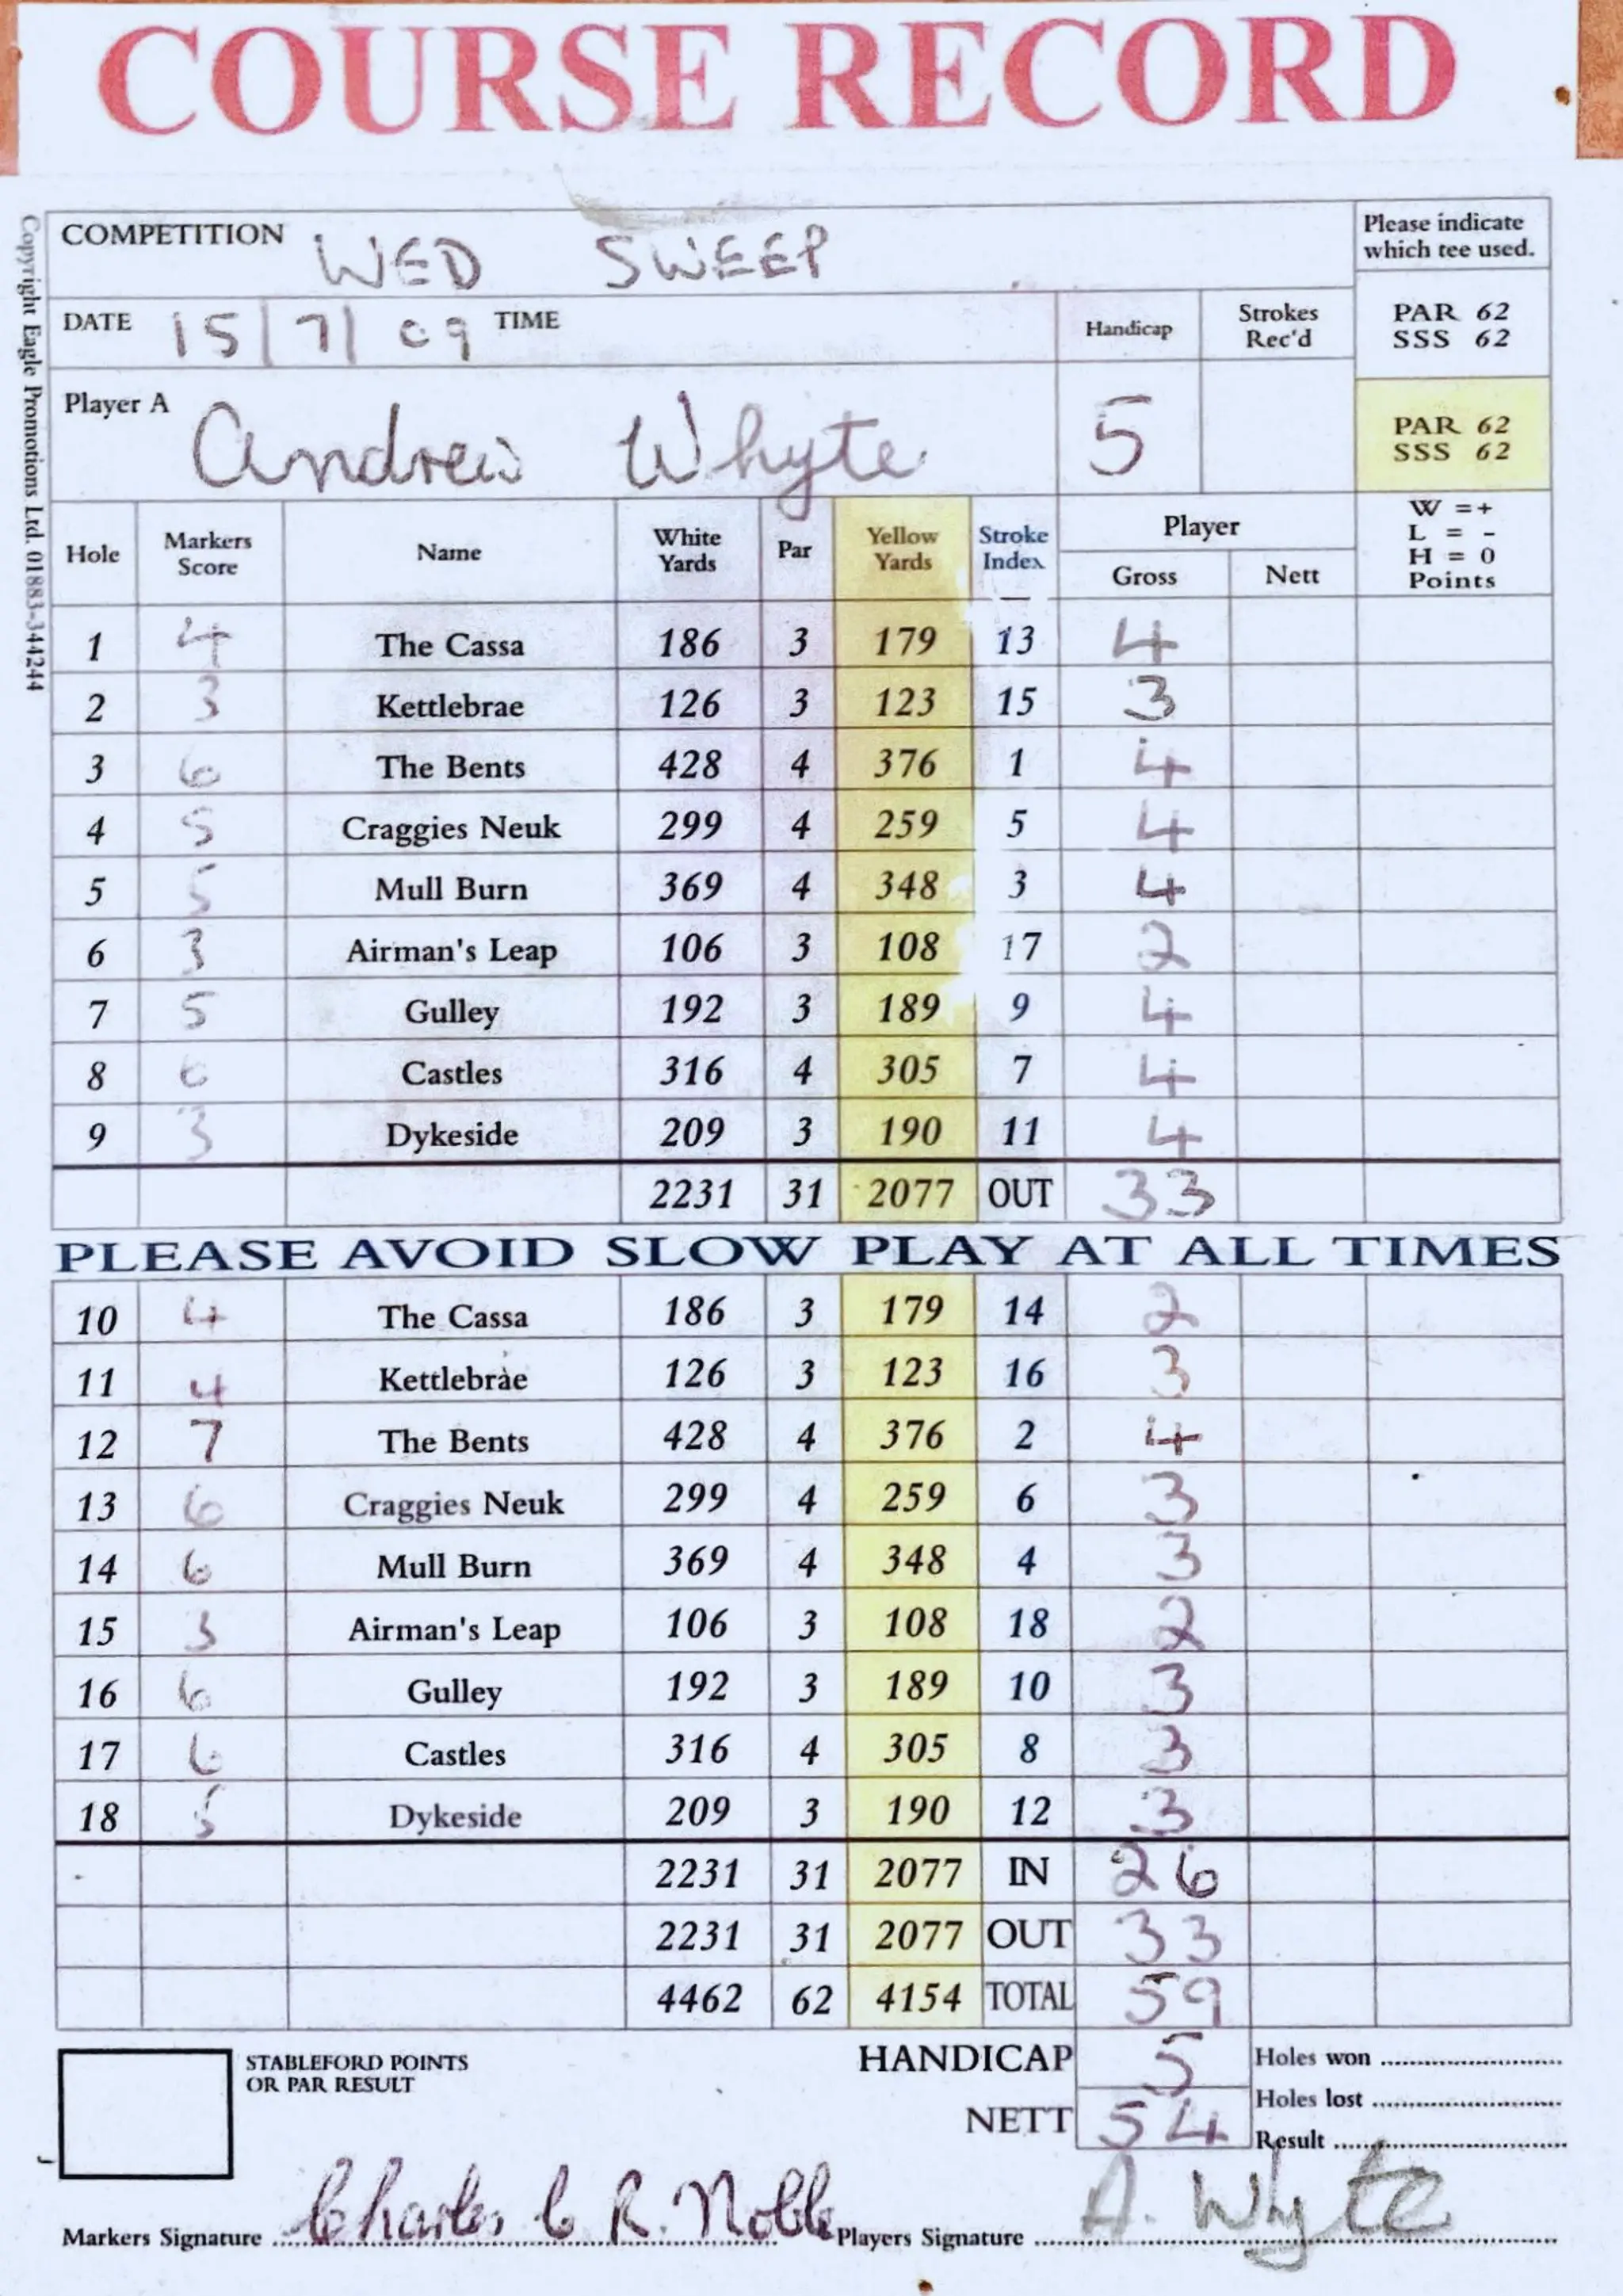 COURSE RECORD
Copyright Eagle Promotions Ltd. 01883-344244
COMPETITION WED SWEEP
Please indicate
which tee used.
DATE 15/7/09 TIME
Handicap
Strokes
Rec'd
PAR 62
SSS 62
Player A Andrew Whyte 5
PAR 62
SSS 62
Hole Markers Score Name White Yards Par Yellow Yards Stroke Index Player Gross Nett
W = +
L = -
H = 0
Points
1 4 The Cassa 186 3 179 13 4
2 3 Kettlebrae 126 3 123 15 3
3 6 The Bents 428 4 376 1 4
4 5 Craggies Neuk 299 4 259 5 4
5 5 Mull Burn 369 4 348 3 4
6 3 Airman's Leap 106 3 108 17 2
7 5 Gulley 192 3 189 9 4
8 6 Castles 316 4 305 7 4
9 3 Dykeside 209 3 190 11 4
2231 31 2077 OUT 33
PLEASE AVOID SLOW PLAY AT ALL TIMES
10 4 The Cassa 186 3 179 14 2
11 4 Kettlebrae 126 3 123 16 3
12 7 The Bents 428 4 376 2 4
13 6 Craggies Neuk 299 4 259 6 3
14 6 Mull Burn 369 4 348 4 3
15 3 Airman's Leap 106 3 108 18 2
16 6 Gulley 192 3 189 10 3
17 6 Castles 316 4 305 8 3
18 5 Dykeside 209 3 190 12 3
2231 31 2077 IN 26
2231 31 2077 OUT 33
4462 62 4154 TOTAL 59
STABLEFORD POINTS
OR PAR RESULT
HANDICAP 5
NETT 54
Holes won
Holes lost
Result
Markers Signature Charles C R. Noble Players Signature A. Whyte